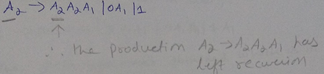 A₂ → A₂A₂A₁ | 0A₁ | 1
∴ the production A₂ → A₂A₂A₁ has
left recursion